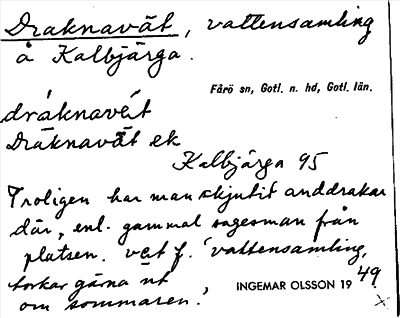 Draknavät, vattensamling
å Kalbjärga.
Fårö sn, Gotl. n. hd, Gotl. län.
dráknavèt
Dräknavät ek
Kalbjärga 95
Troligen har man skjutit anddrakar
där, enl. gammal sagesman från
platsen. vät f. 'vattensamling,
torkar gärna ut
om sommaren.'
INGEMAR OLSSON 1949